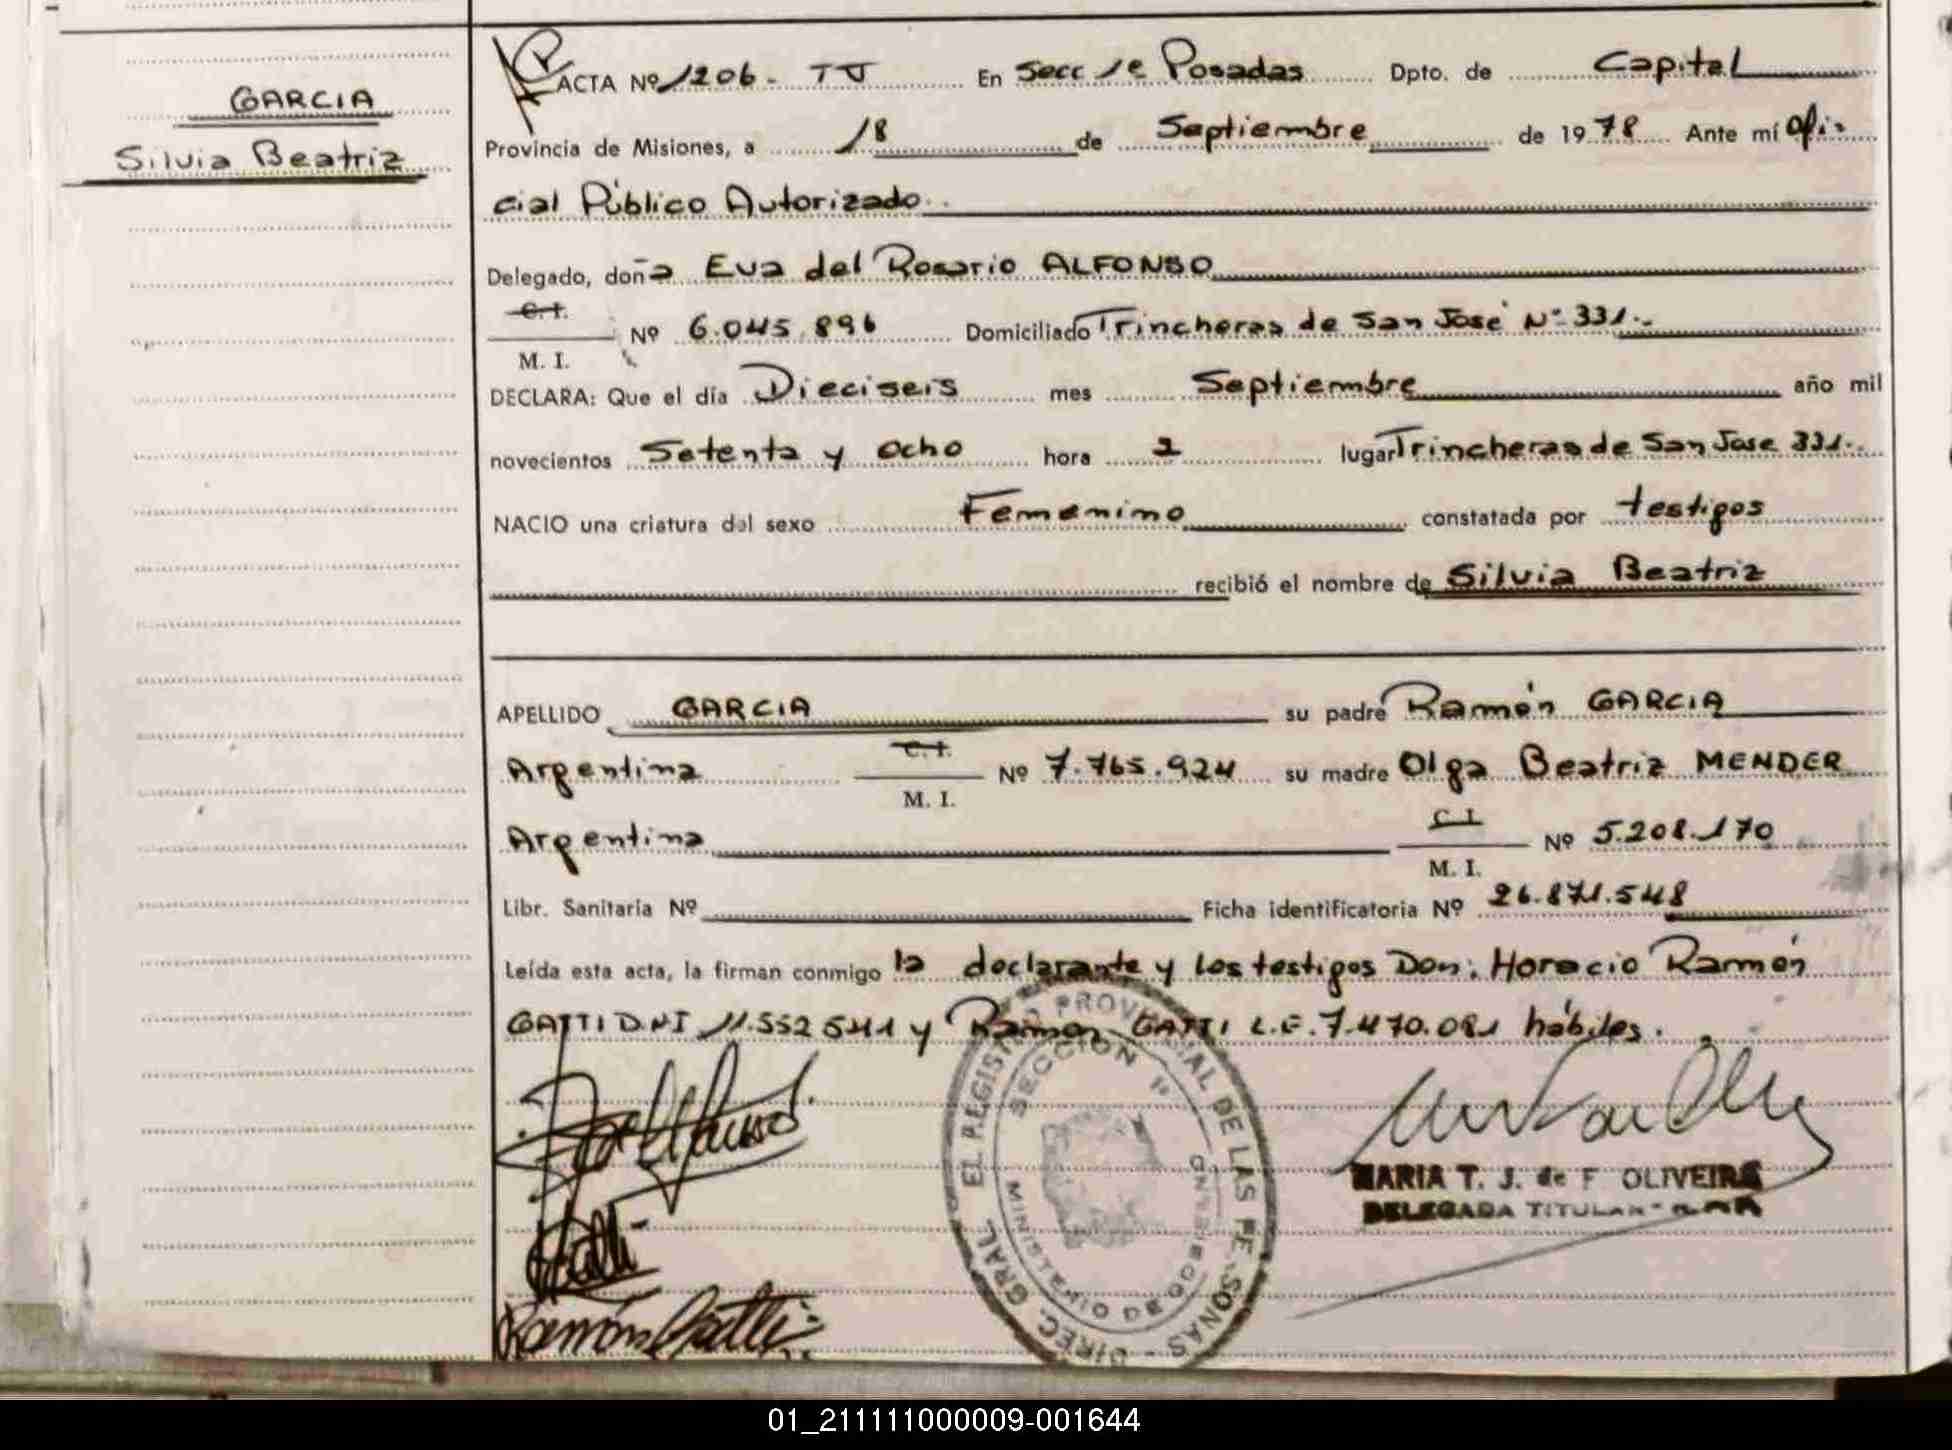 GARCIA
Silvia Beatriz
ACTA Nº 1206 - TJ En Secc 1ª Posadas Dpto. de Capital
Provincia de Misiones, a 18 de Septiembre de 1978 Ante mí Ofi-
cial Público Autorizado.
Delegado, doña Eva del Rosario ALFONSO
C.I.
M. I. Nº 6.045.896 Domiciliado Trincheras de San José Nº 331.-
DECLARA: Que el día Dieciseis mes Septiembre año mil
novecientos Setenta y Ocho hora 2 lugar Trincheras de San Jose 331.-
NACIO una criatura del sexo Femenino constatada por testigos
recibió el nombre de Silvia Beatriz
APELLIDO GARCIA su padre Ramón GARCIA
Argentina C.I. M. I. Nº 7.765.924 su madre Olga Beatriz MENDER
Argentina C.I. M. I. Nº 5.208.170
Libr. Sanitaria Nº Ficha identificatoria Nº 26.871.548
Leída esta acta, la firman conmigo la declarante y los testigos Don: Horacio Ramón
GATTI D.N.I 11.552541 y Ramon GATTI L.E. 7.470.081 hábiles.
DIREC. GRAL. EL REGISTRO PROVINCIAL DE LAS PERSONAS
SECCION 1ª
MINISTERIO DE GOBIERNO
MARIA T. J. de F OLIVEIRA
DELEGADA TITULAR
Ramón Gatti
01_211111000009-001644